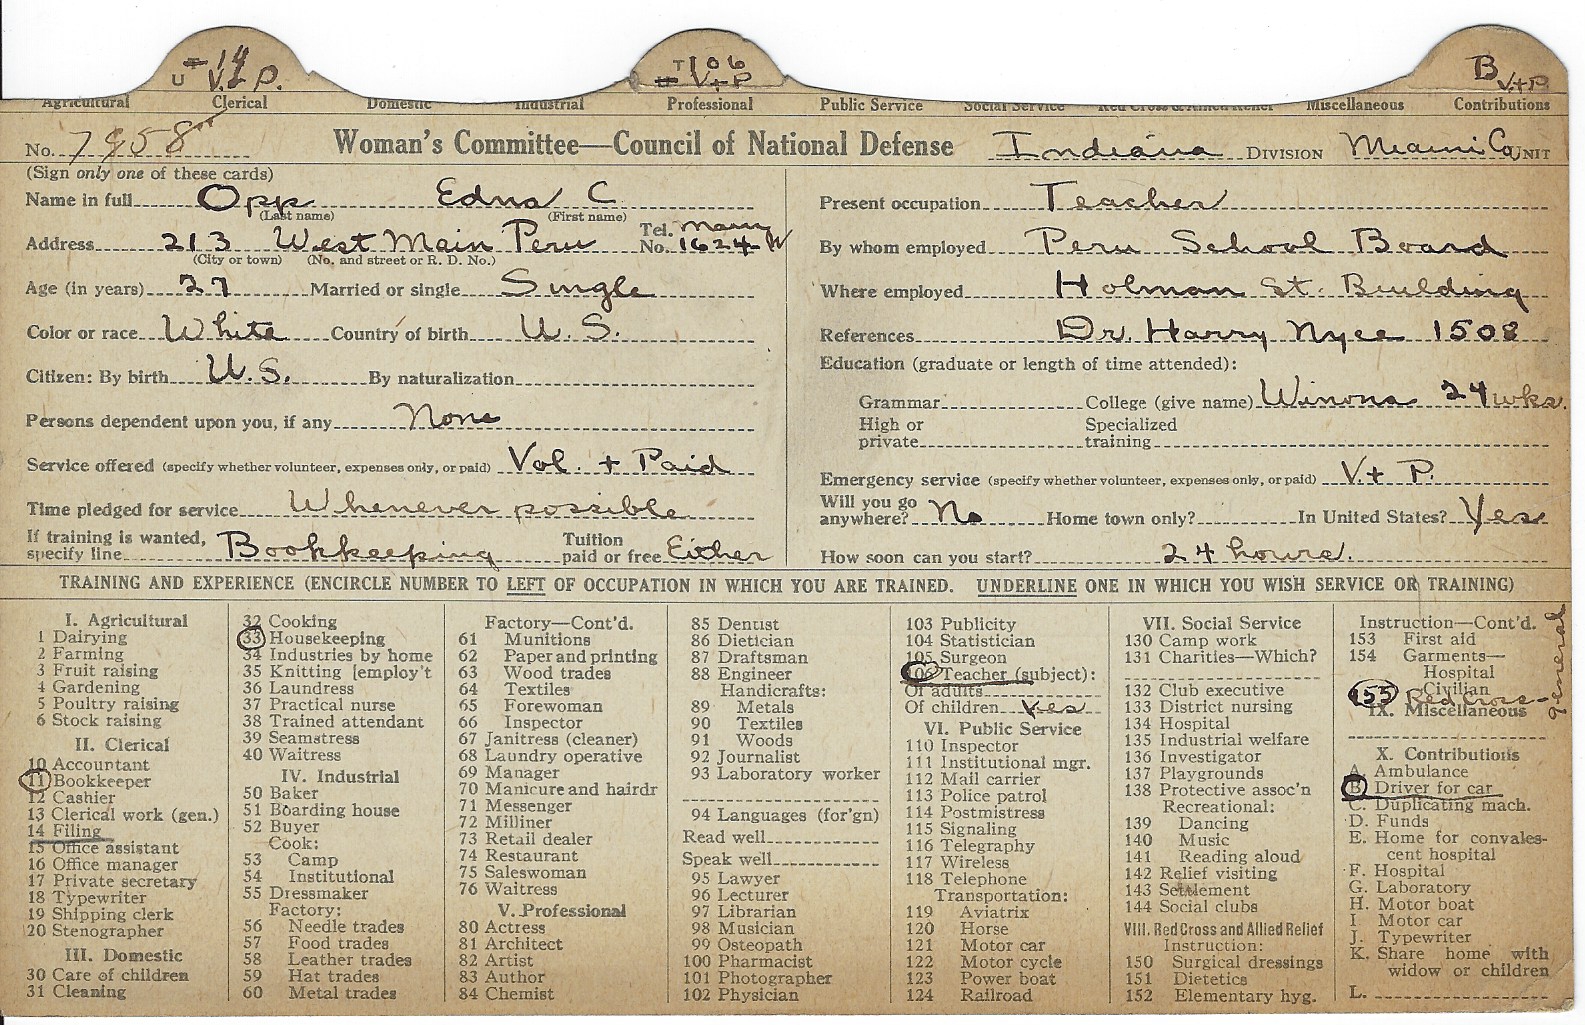 U 14 V. P.
T 106 V+P
B V+P
Agricultural Clerical Domestic Industrial Professional Public Service Social Service Red Cross & Allied Relief Miscellaneous Contributions
No. 7958 Woman's Committee—Council of National Defense Indiana DIVISION Miami Co. UNIT
(Sign only one of these cards)
Name in full Opp Edna C
(Last name) (First name)
Address 213 West Main Peru Tel. No. Main 1624 W
(City or town) (No. and street or R. D. No.)
Age (in years) 27 Married or single Single
Color or race White Country of birth U. S.
Citizen: By birth U. S. By naturalization
Persons dependent upon you, if any None
Service offered (specify whether volunteer, expenses only, or paid) Vol. + Paid
Time pledged for service Whenever possible
If training is wanted, specify line Bookkeeping Tuition paid or free Either
Present occupation Teacher
By whom employed Peru School Board
Where employed Holman St. Building
References Dr. Harry Nyce 1508
Education (graduate or length of time attended):
Grammar College (give name) Winona 24 wks.
High or private Specialized training
Emergency service (specify whether volunteer, expenses only, or paid) V. + P.
Will you go anywhere? No Home town only? In United States? Yes
How soon can you start? 24 hours.
TRAINING AND EXPERIENCE (ENCIRCLE NUMBER TO LEFT OF OCCUPATION IN WHICH YOU ARE TRAINED. UNDERLINE ONE IN WHICH YOU WISH SERVICE OR TRAINING)
I. Agricultural
1 Dairying
2 Farming
3 Fruit raising
4 Gardening
5 Poultry raising
6 Stock raising
II. Clerical
10 Accountant
11 Bookkeeper
12 Cashier
13 Clerical work (gen.)
14 Filing
15 Office assistant
16 Office manager
17 Private secretary
18 Typewriter
19 Shipping clerk
20 Stenographer
III. Domestic
30 Care of children
31 Cleaning
32 Cooking
33 Housekeeping
34 Industries by home
35 Knitting [employ't
36 Laundress
37 Practical nurse
38 Trained attendant
39 Seamstress
40 Waitress
IV. Industrial
50 Baker
51 Boarding house
52 Buyer
Cook:
53 Camp
54 Institutional
55 Dressmaker
Factory:
56 Needle trades
57 Food trades
58 Leather trades
59 Hat trades
60 Metal trades
Factory—Cont'd.
61 Munitions
62 Paper and printing
63 Wood trades
64 Textiles
65 Forewoman
66 Inspector
67 Janitress (cleaner)
68 Laundry operative
69 Manager
70 Manicure and hairdr
71 Messenger
72 Milliner
73 Retail dealer
74 Restaurant
75 Saleswoman
76 Waitress
V. Professional
80 Actress
81 Architect
82 Artist
83 Author
84 Chemist
85 Dentist
86 Dietician
87 Draftsman
88 Engineer
Handicrafts:
89 Metals
90 Textiles
91 Woods
92 Journalist
93 Laboratory worker
94 Languages (for'gn)
Read well
Speak well
95 Lawyer
96 Lecturer
97 Librarian
98 Musician
99 Osteopath
100 Pharmacist
101 Photographer
102 Physician
103 Publicity
104 Statistician
105 Surgeon
106 Teacher (subject):
Of adults
Of children Yes
VI. Public Service
110 Inspector
111 Institutional mgr.
112 Mail carrier
113 Police patrol
114 Postmistress
115 Signaling
116 Telegraphy
117 Wireless
118 Telephone
Transportation:
119 Aviatrix
120 Horse
121 Motor car
122 Motor cycle
123 Power boat
124 Railroad
VII. Social Service
130 Camp work
131 Charities—Which?
132 Club executive
133 District nursing
134 Hospital
135 Industrial welfare
136 Investigator
137 Playgrounds
138 Protective assoc'n
Recreational:
139 Dancing
140 Music
141 Reading aloud
142 Relief visiting
143 Settlement
144 Social clubs
VIII. Red Cross and Allied Relief
Instruction:
150 Surgical dressings
151 Dietetics
152 Elementary hyg.
Instruction—Cont'd.
153 First aid
154 Garments—
Hospital
Civilian
155 Red Cross—general
IX. Miscellaneous
X. Contributions
A. Ambulance
B. Driver for car
C. Duplicating mach.
D. Funds
E. Home for convales-
cent hospital
F. Hospital
G. Laboratory
H. Motor boat
I Motor car
J. Typewriter
K. Share home with
widow or children
L.